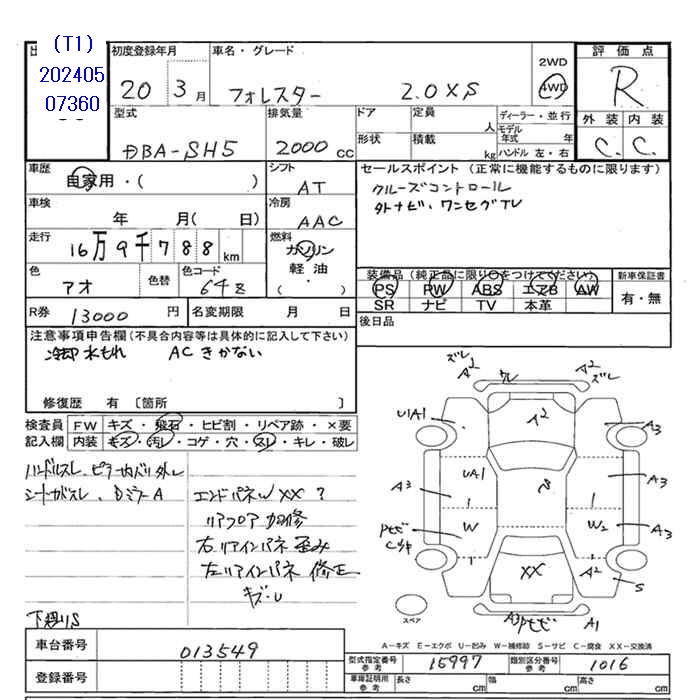 (T1)
202405
07360
初度登録年月
20年3月
車名・グレード
フォレスター 2.0XS
2WD
4WD
評価点
R
外装 内装
C. C.
型式
DBA-SH5
排気量
2000 cc
ドア
定員
人
形状
積載
kg
ディーラー・並行
モデル年式 年
ハンドル 左・右
車歴
自家用・( )
シフト
AT
セールスポイント(正常に機能するものに限ります)
クルーズコントロール
外ナビ・ワンセグTV
車検
年 月( 日)
冷房
AAC
走行
16万9千788km
燃料
ガソリン
軽油
( )
色
アオ
色替
色コード
64Z
装備品(純正品に限り○をつけてください)
新車保証書
PS PW ABS エアB AW
SR ナビ TV 本革
有・無
R券
13000 円
名変期限 月 日
後日品
注意事項申告欄(不具合内容等は具体的に記入して下さい)
冷却水もれ ACきかない
修復歴 有 〔箇所 〕
検査員
記入欄
FW キズ・飛石・ヒビ割・リペア跡・×要
内装 キズ・汚れ・コゲ・穴・スレ・キレ・破レ
ハンドルスレ、ピラー内バリ外レ
シートガスレ、DミラーA
エンドパネルW XX ?
リアフロア加修
右リアインパネ歪み
左リアインパネ修正
キズ・U
下廻りS
ズレ
A2
ウレ
A2
ズレ
U1A1
A2
A3
UA1
A3
A3
W
W2
A3
XX
A2
S
A3
A1
スペア
A-キズ E-エクボ U-凹み W-補修跡 S-サビ C-腐食 XX-交換済
車台番号
013549
登録番号
型式指定番号
参考
15997
類別区分番号
参考
1016
車庫証明用
参考
長さ cm
幅 cm
高さ cm